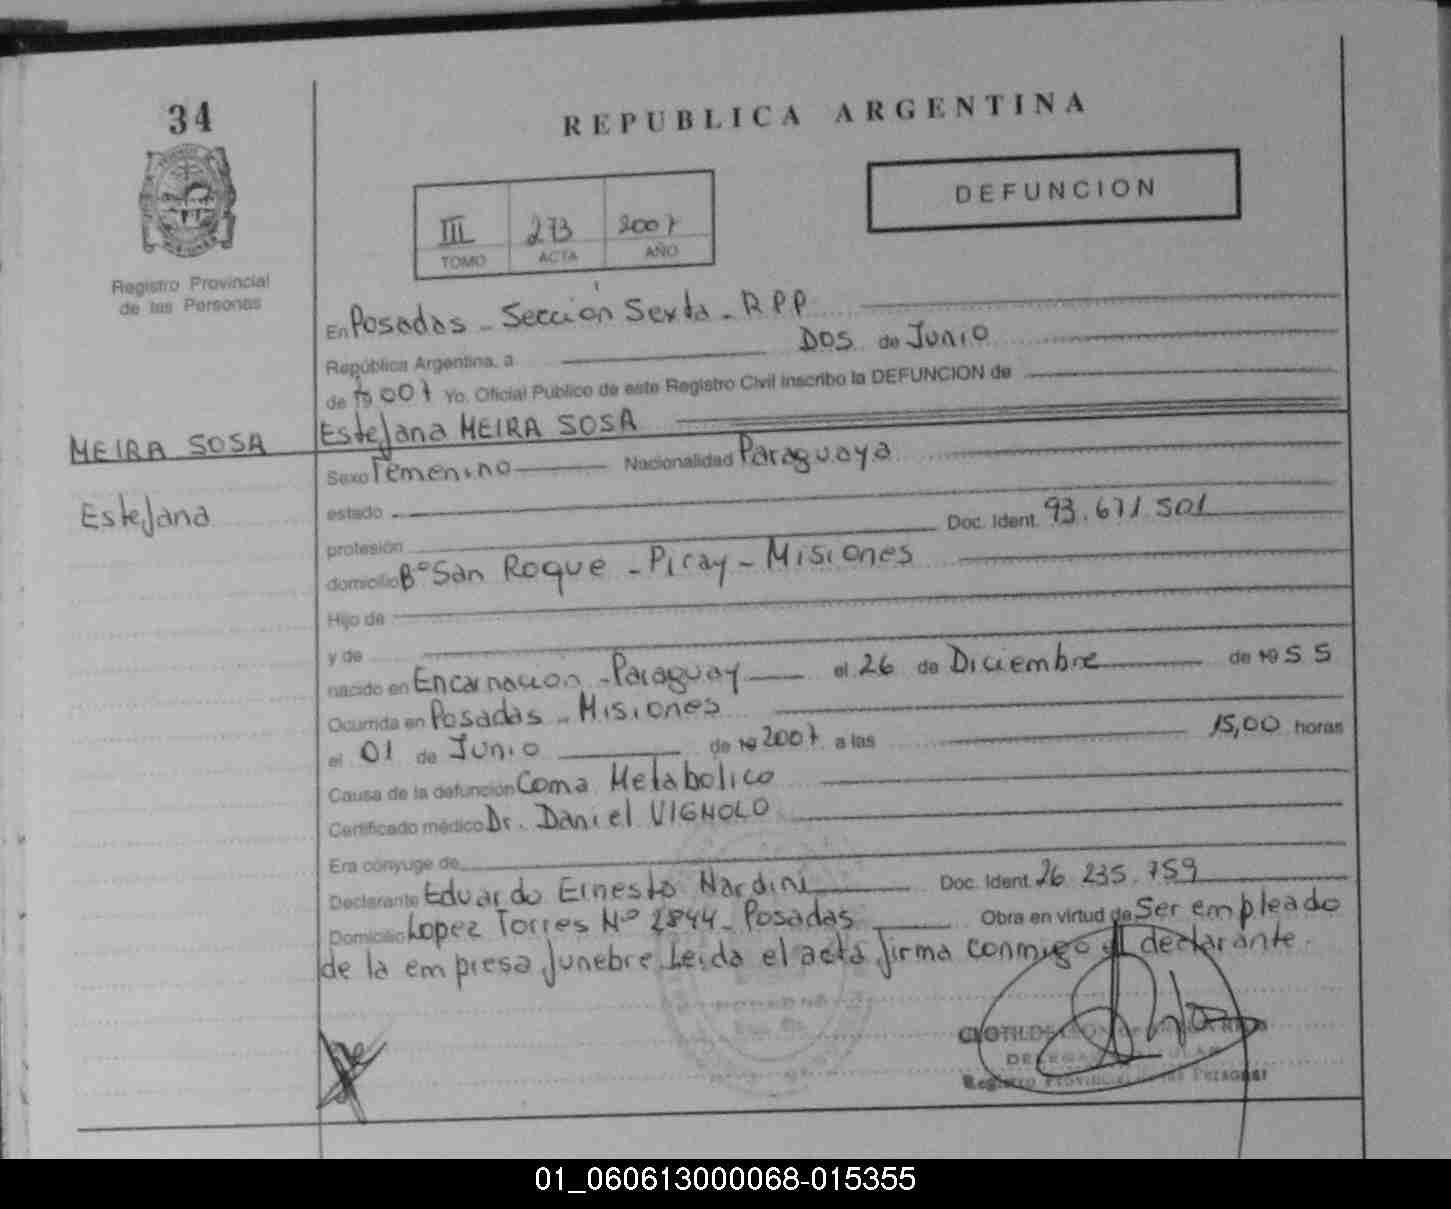 34
REPUBLICA ARGENTINA
DEFUNCION
III 273 2007
TOMO ACTA AÑO
Registro Provincial
de las Personas
En Posadas - Sección Sexta - RPP
República Argentina, a DOS de Junio
de 2007 Yo. Oficial Público de este Registro Civil inscribo la DEFUNCION de
MEIRA SOSA
Estefana MEIRA SOSA
Sexo Femenino Nacionalidad Paraguaya
Estefana
estado
profesión Doc. Ident. 93.671.501
domicilio Bº San Roque - Piray - Misiones
Hijo de
y de
nacido en Encarnacion - Paraguay el 26 de Diciembre de 1955
Ocurrida en Posadas - Misiones
el 01 de Junio de 19 2007 a las 15,00 horas
Causa de la defunción Coma Metabolico
Certificado médico Dr. Daniel VIGNOLO
Era cónyuge de
Declarante Eduardo Ernesto Nardini Doc. Ident. 26.235.759
Domicilio Lopez Torres Nº 2844 - Posadas Obra en virtud de Ser empleado
de la empresa funebre. Leida el acta firma conmigo el declarante.
Registro Provincial de las Personas
01_060613000068-015355